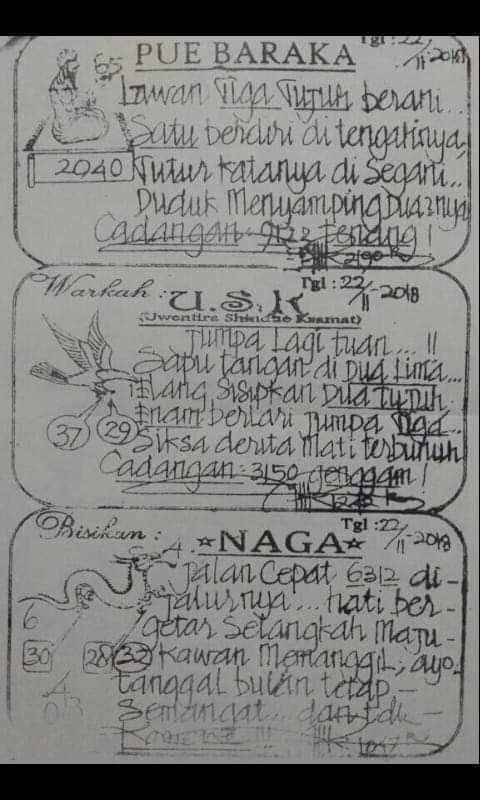 PUE BARAKA
Tgl : 22/11-2018
65
Lawan Tiga Tujuh berani..
Satu berdiri di tengahnya,
2040 Tutur katanya di Segani..
Duduk Menyamping Duaznya
Cadangan - 9122 tenang !
2190
Warkah : U.S.K
Tgl : 22/11-2018
(Uwentira Shindue Kramat)
Jumpa Lagi tuan... !!
Sapu tangan di Dua Lima...
Elang Sisipkan Dua Tujuh
37 29 Enam berlari Jumpa Tiga...
Siksa derita Mati terbunuh
Cadangan - 3150 genggam !
Bisikan : NAGA
Tgl : 22/11-2018
4
Jalan Cepat 6312 di -
Jalurnya... hati ber -
6 getar Selangkah Maju -
30 28 32 Kawan Memanggil, ayo.
4 tanggal bulan tetap -
03 Semangat..